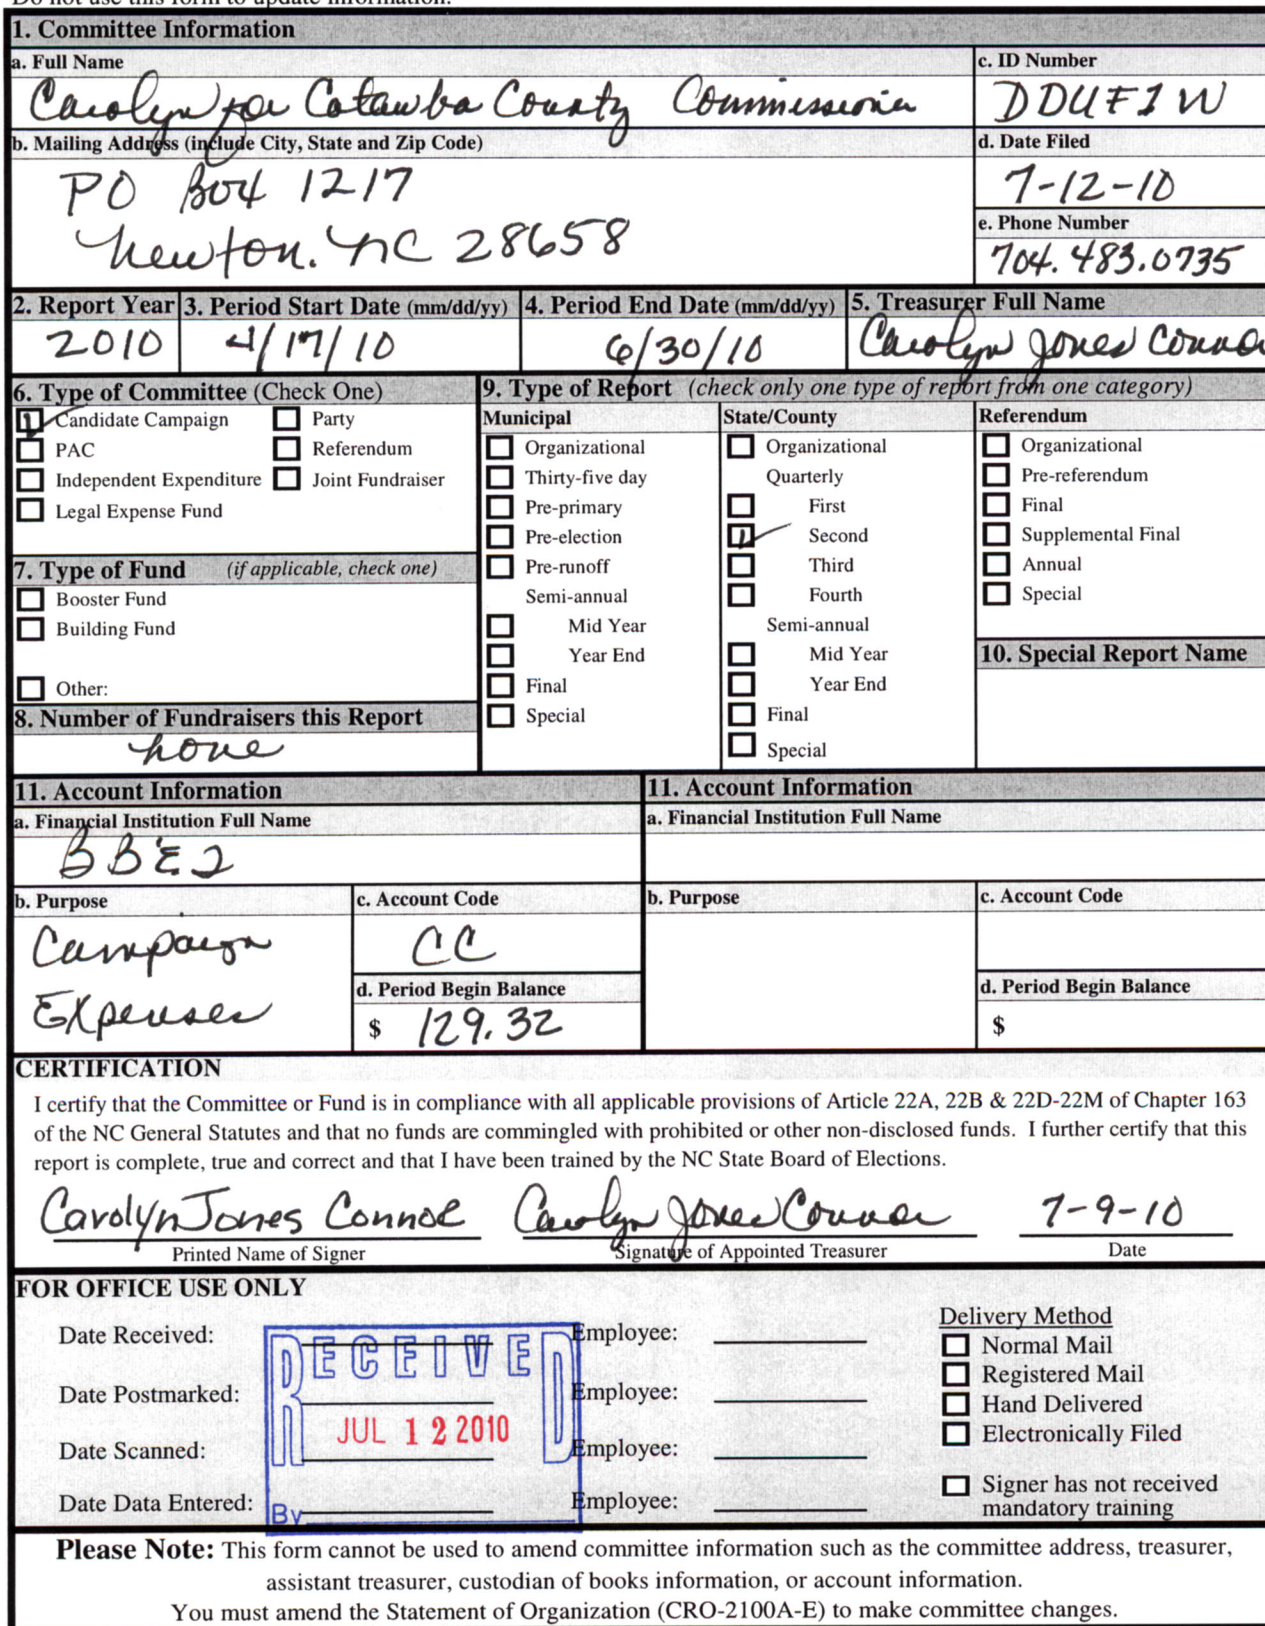 Do not use this form to update information.
1. Committee Information
a. Full Name
c. ID Number
Carolyn for Catawba County Commissioner
DDUF1W
b. Mailing Address (include City, State and Zip Code)
d. Date Filed
PO Box 1217
7-12-10
Newton. NC 28658
e. Phone Number
704.483.0735
2. Report Year 3. Period Start Date (mm/dd/yy) 4. Period End Date (mm/dd/yy) 5. Treasurer Full Name
2010 4/17/10 6/30/10 Carolyn Jones Connor
6. Type of Committee (Check One)
Candidate Campaign Party
PAC Referendum
Independent Expenditure Joint Fundraiser
Legal Expense Fund
7. Type of Fund (if applicable, check one)
Booster Fund
Building Fund
Other:
8. Number of Fundraisers this Report
none
9. Type of Report (check only one type of report from one category)
Municipal
Organizational
Thirty-five day
Pre-primary
Pre-election
Pre-runoff
Semi-annual
Mid Year
Year End
Final
Special
State/County
Organizational
Quarterly
First
Second
Third
Fourth
Semi-annual
Mid Year
Year End
Final
Special
Referendum
Organizational
Pre-referendum
Final
Supplemental Final
Annual
Special
10. Special Report Name
11. Account Information
a. Financial Institution Full Name
BB&T
b. Purpose
Campaign
Expenses
c. Account Code
CC
d. Period Begin Balance
$ 129.32
11. Account Information
a. Financial Institution Full Name
b. Purpose
c. Account Code
d. Period Begin Balance
$
CERTIFICATION
I certify that the Committee or Fund is in compliance with all applicable provisions of Article 22A, 22B & 22D-22M of Chapter 163
of the NC General Statutes and that no funds are commingled with prohibited or other non-disclosed funds. I further certify that this
report is complete, true and correct and that I have been trained by the NC State Board of Elections.
Carolyn Jones Connor Carolyn Jones Connor 7-9-10
Printed Name of Signer Signature of Appointed Treasurer Date
FOR OFFICE USE ONLY
Date Received: Employee:
Date Postmarked: Employee:
Date Scanned: Employee:
Date Data Entered: Employee:
RECEIVED
JUL 12 2010
By
Delivery Method
Normal Mail
Registered Mail
Hand Delivered
Electronically Filed
Signer has not received
mandatory training
Please Note: This form cannot be used to amend committee information such as the committee address, treasurer,
assistant treasurer, custodian of books information, or account information.
You must amend the Statement of Organization (CRO-2100A-E) to make committee changes.